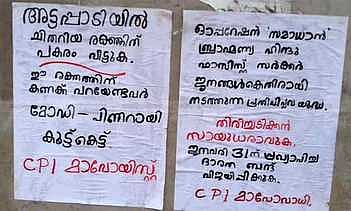 അട്ടപ്പാടിയിൽ
ചിതറിയ രക്തത്തിന്
പകരം വീട്ടുക.
ഈ രക്തത്തിന്
കണക്ക് പറയേണ്ടവർ
മോഡി - പിണറായി
കൂട്ട്കെട്ട്
CPI മാവോയിസ്റ്റ്
ഓപ്പറേഷൻ 'സമാധാൻ'
ബ്രാഹ്മണ്യ ഹിന്ദു
ഫാസിസ്റ്റ് സർക്കാർ
ജനങ്ങൾക്കെതിരായി
നടത്തുന്ന പ്രതിവിപ്ലവ യുദ്ധം.
തിരിച്ചടിക്കാൻ
സായുധരാവുക.
ജനുവരി 31ന് പ്രഖ്യാപിച്ച
ഭാരത ബന്ദ്
വിജയിപ്പിക്കുക.
CPI മാവോവാദി.